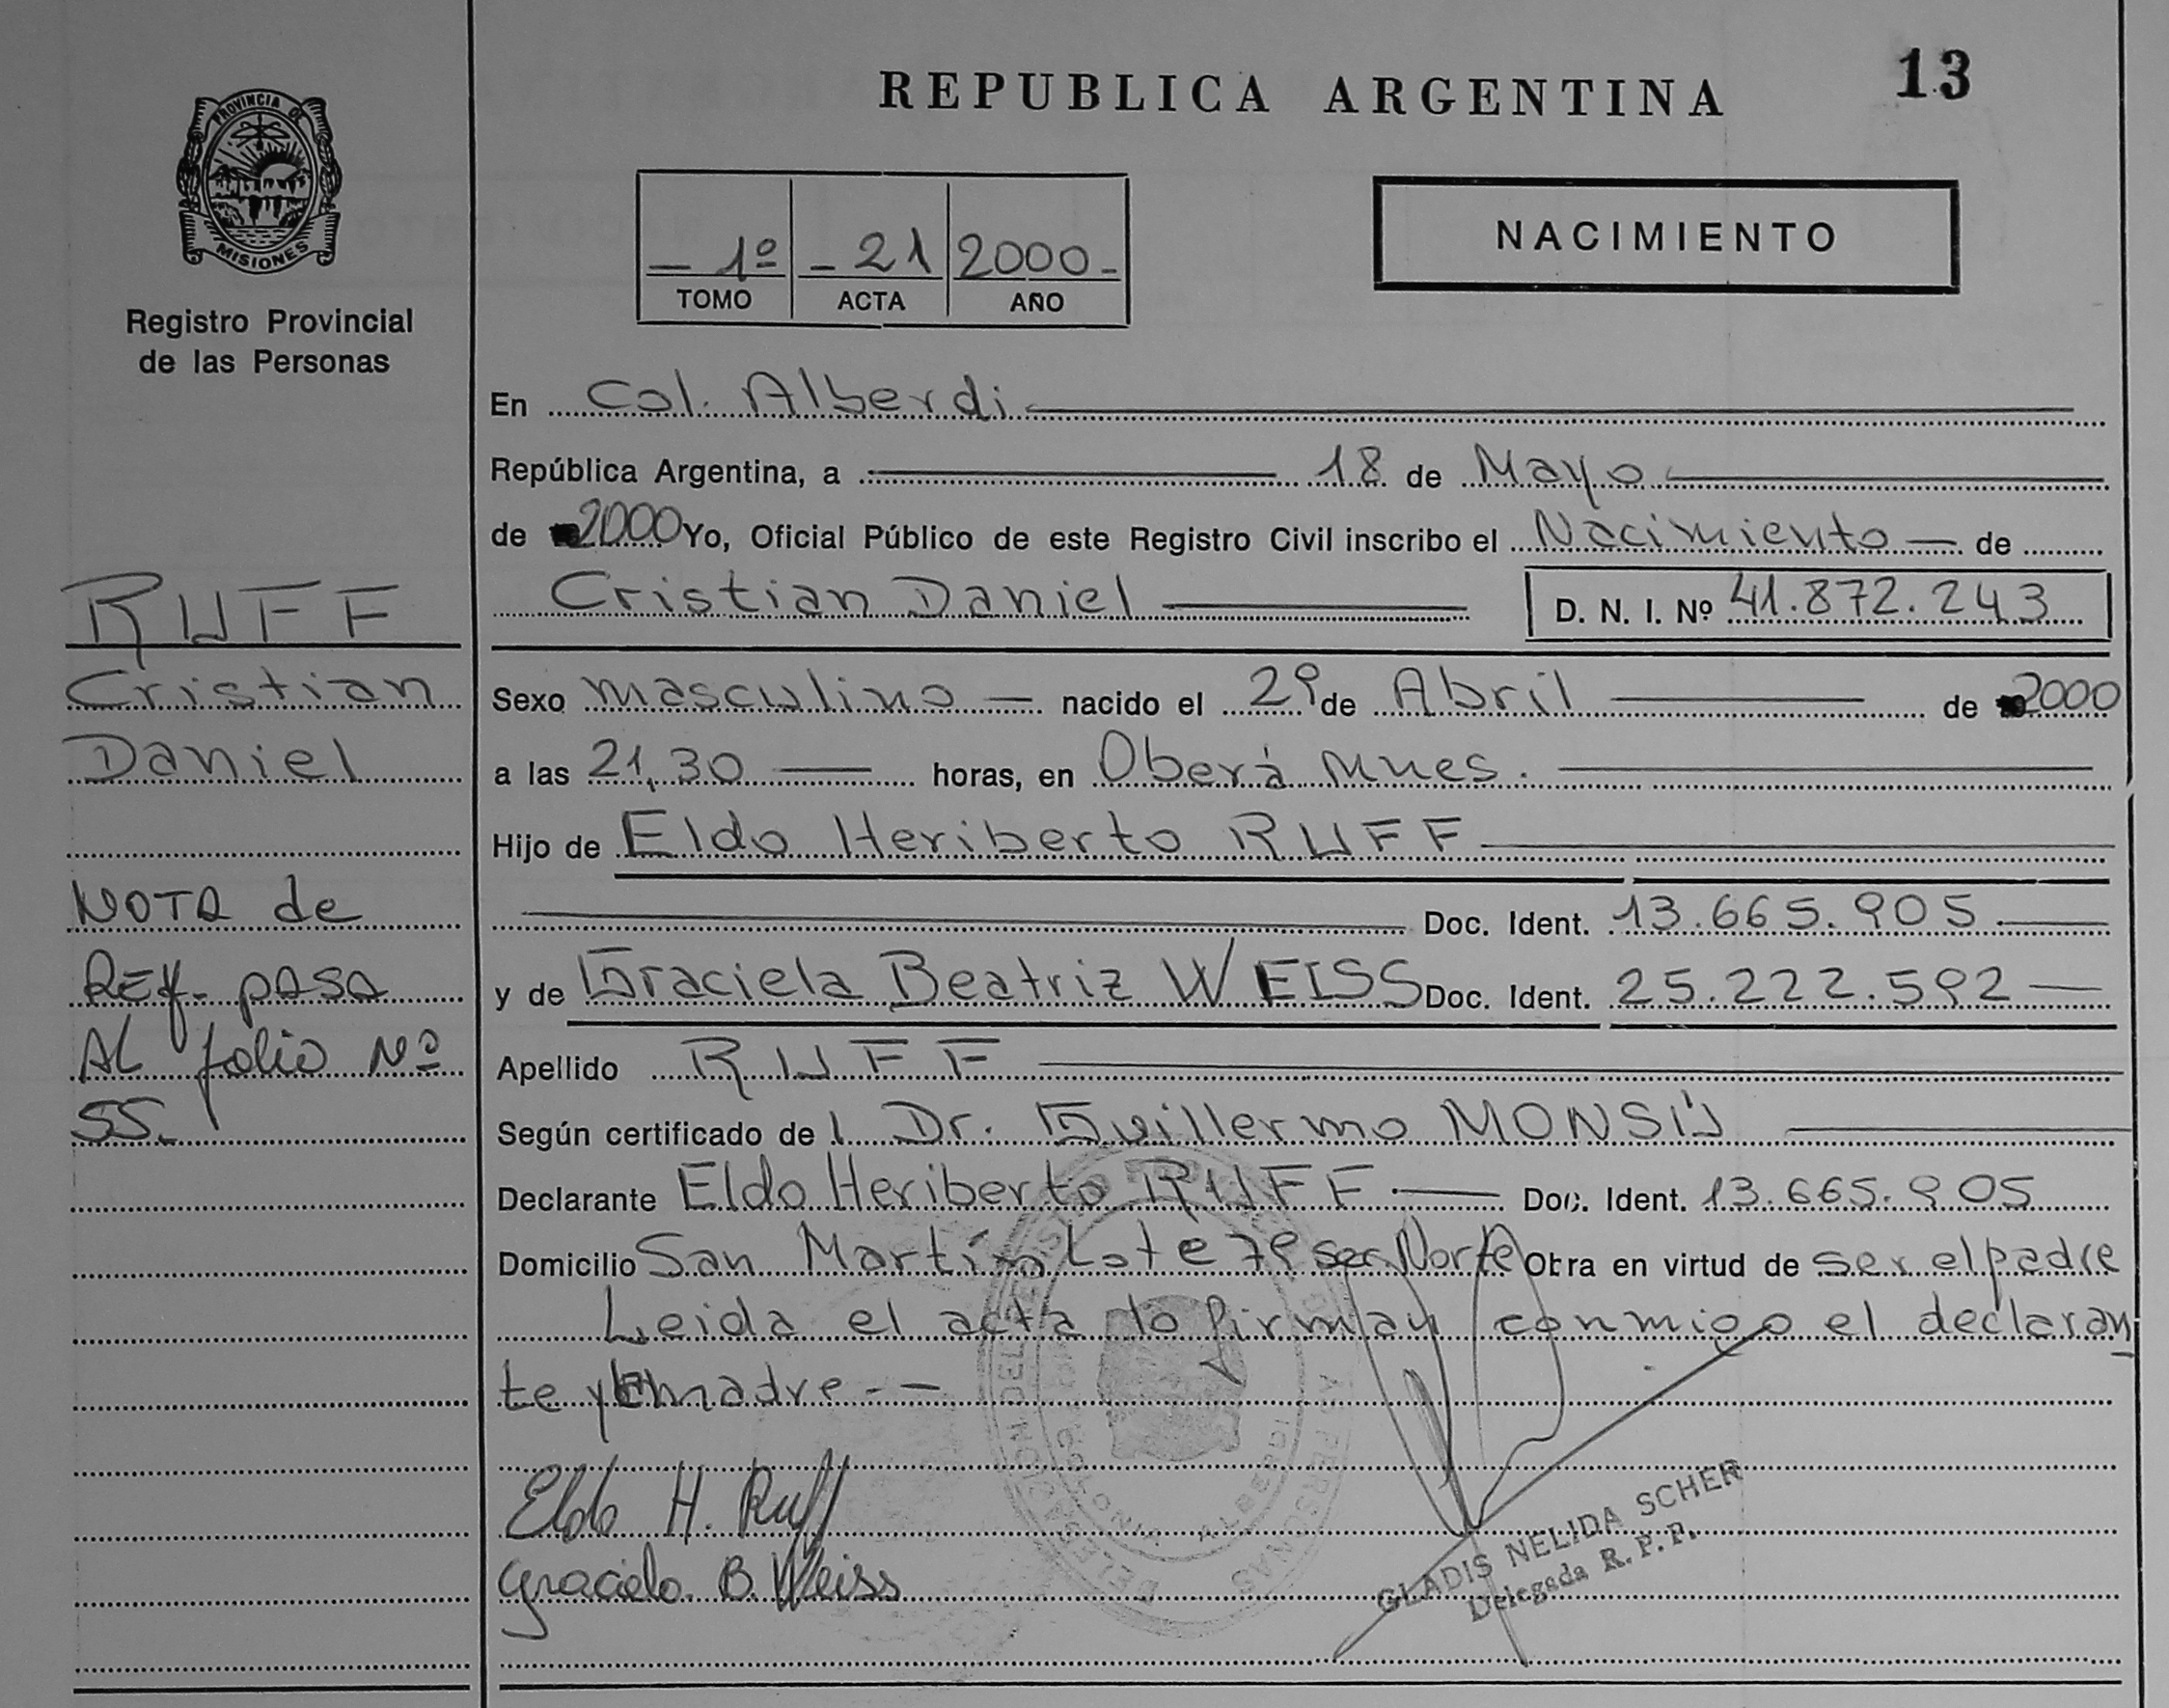 REPUBLICA ARGENTINA
13
PROVINCIA DE
MISIONES
Registro Provincial
de las Personas
1º - 21 2000-
TOMO ACTA AÑO
NACIMIENTO
En Col. Alberdi
República Argentina, a 18 de Mayo
de 2000 Yo, Oficial Público de este Registro Civil inscribo el Nacimiento de
Cristian Daniel D. N. I. Nº 41.872.243
RUFF
Cristian
Daniel
Sexo masculino nacido el 29 de Abril de 2000
a las 21,30 horas, en Oberá Mnes.
Hijo de Eldo Heriberto RUFF
Doc. Ident. 13.665.905
y de Graciela Beatriz WEISS Doc. Ident. 25.222.592
NOTA de
REF. PASA
AL folio Nº
55.
Apellido RUFF
Según certificado del Dr. Guillermo MONSÚ
Declarante Eldo Heriberto RUFF Doc. Ident. 13.665.905
Domicilio San Martín Lote 79 sec Norte Obra en virtud de ser el padre
Leida el acta lo firman conmigo el declaran
te y madre--
Eldo H. Ruff
Graciela. B. Weiss
GLADIS NELIDA SCHER
Delegada R. P. P.
COLONIA ALBERDI